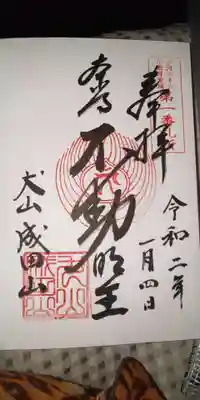 奉拝
第一番札
令和二年
一月四日
本尊
不動明王
犬山成田山